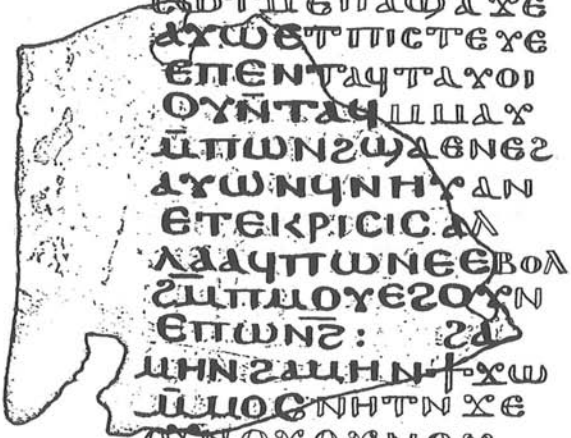 ⲥⲱⲧⲙⲉⲡⲁϣⲁϫⲉ
ⲁⲩⲱⲉⲧⲡⲓⲥⲧⲉⲩⲉ
ⲉⲡⲉⲛⲧⲁϥⲧⲁⲩⲟⲓ
ⲟⲩⲛ̄ⲧⲁϥⲙⲙⲁⲩ
ⲙ̄ⲡⲱⲛϩϣⲁⲉⲛⲉϩ
ⲁⲩⲱⲛϥⲛⲏⲩⲁⲛ
ⲉⲧⲉⲕⲣⲓⲥⲓⲥⲁⲗ
ⲗⲁⲁϥⲡⲱⲛⲉⲉⲃⲟⲗ
ϩⲙ̄ⲡⲙⲟⲩⲉϩⲟⲩⲛ
ⲉⲡⲱⲛϩ̄: ϩⲁ
ⲙⲏⲛϩⲁⲙⲏⲛϯϫⲱ
ⲙ̄ⲙⲟⲥⲛⲏⲧⲛϫⲉ